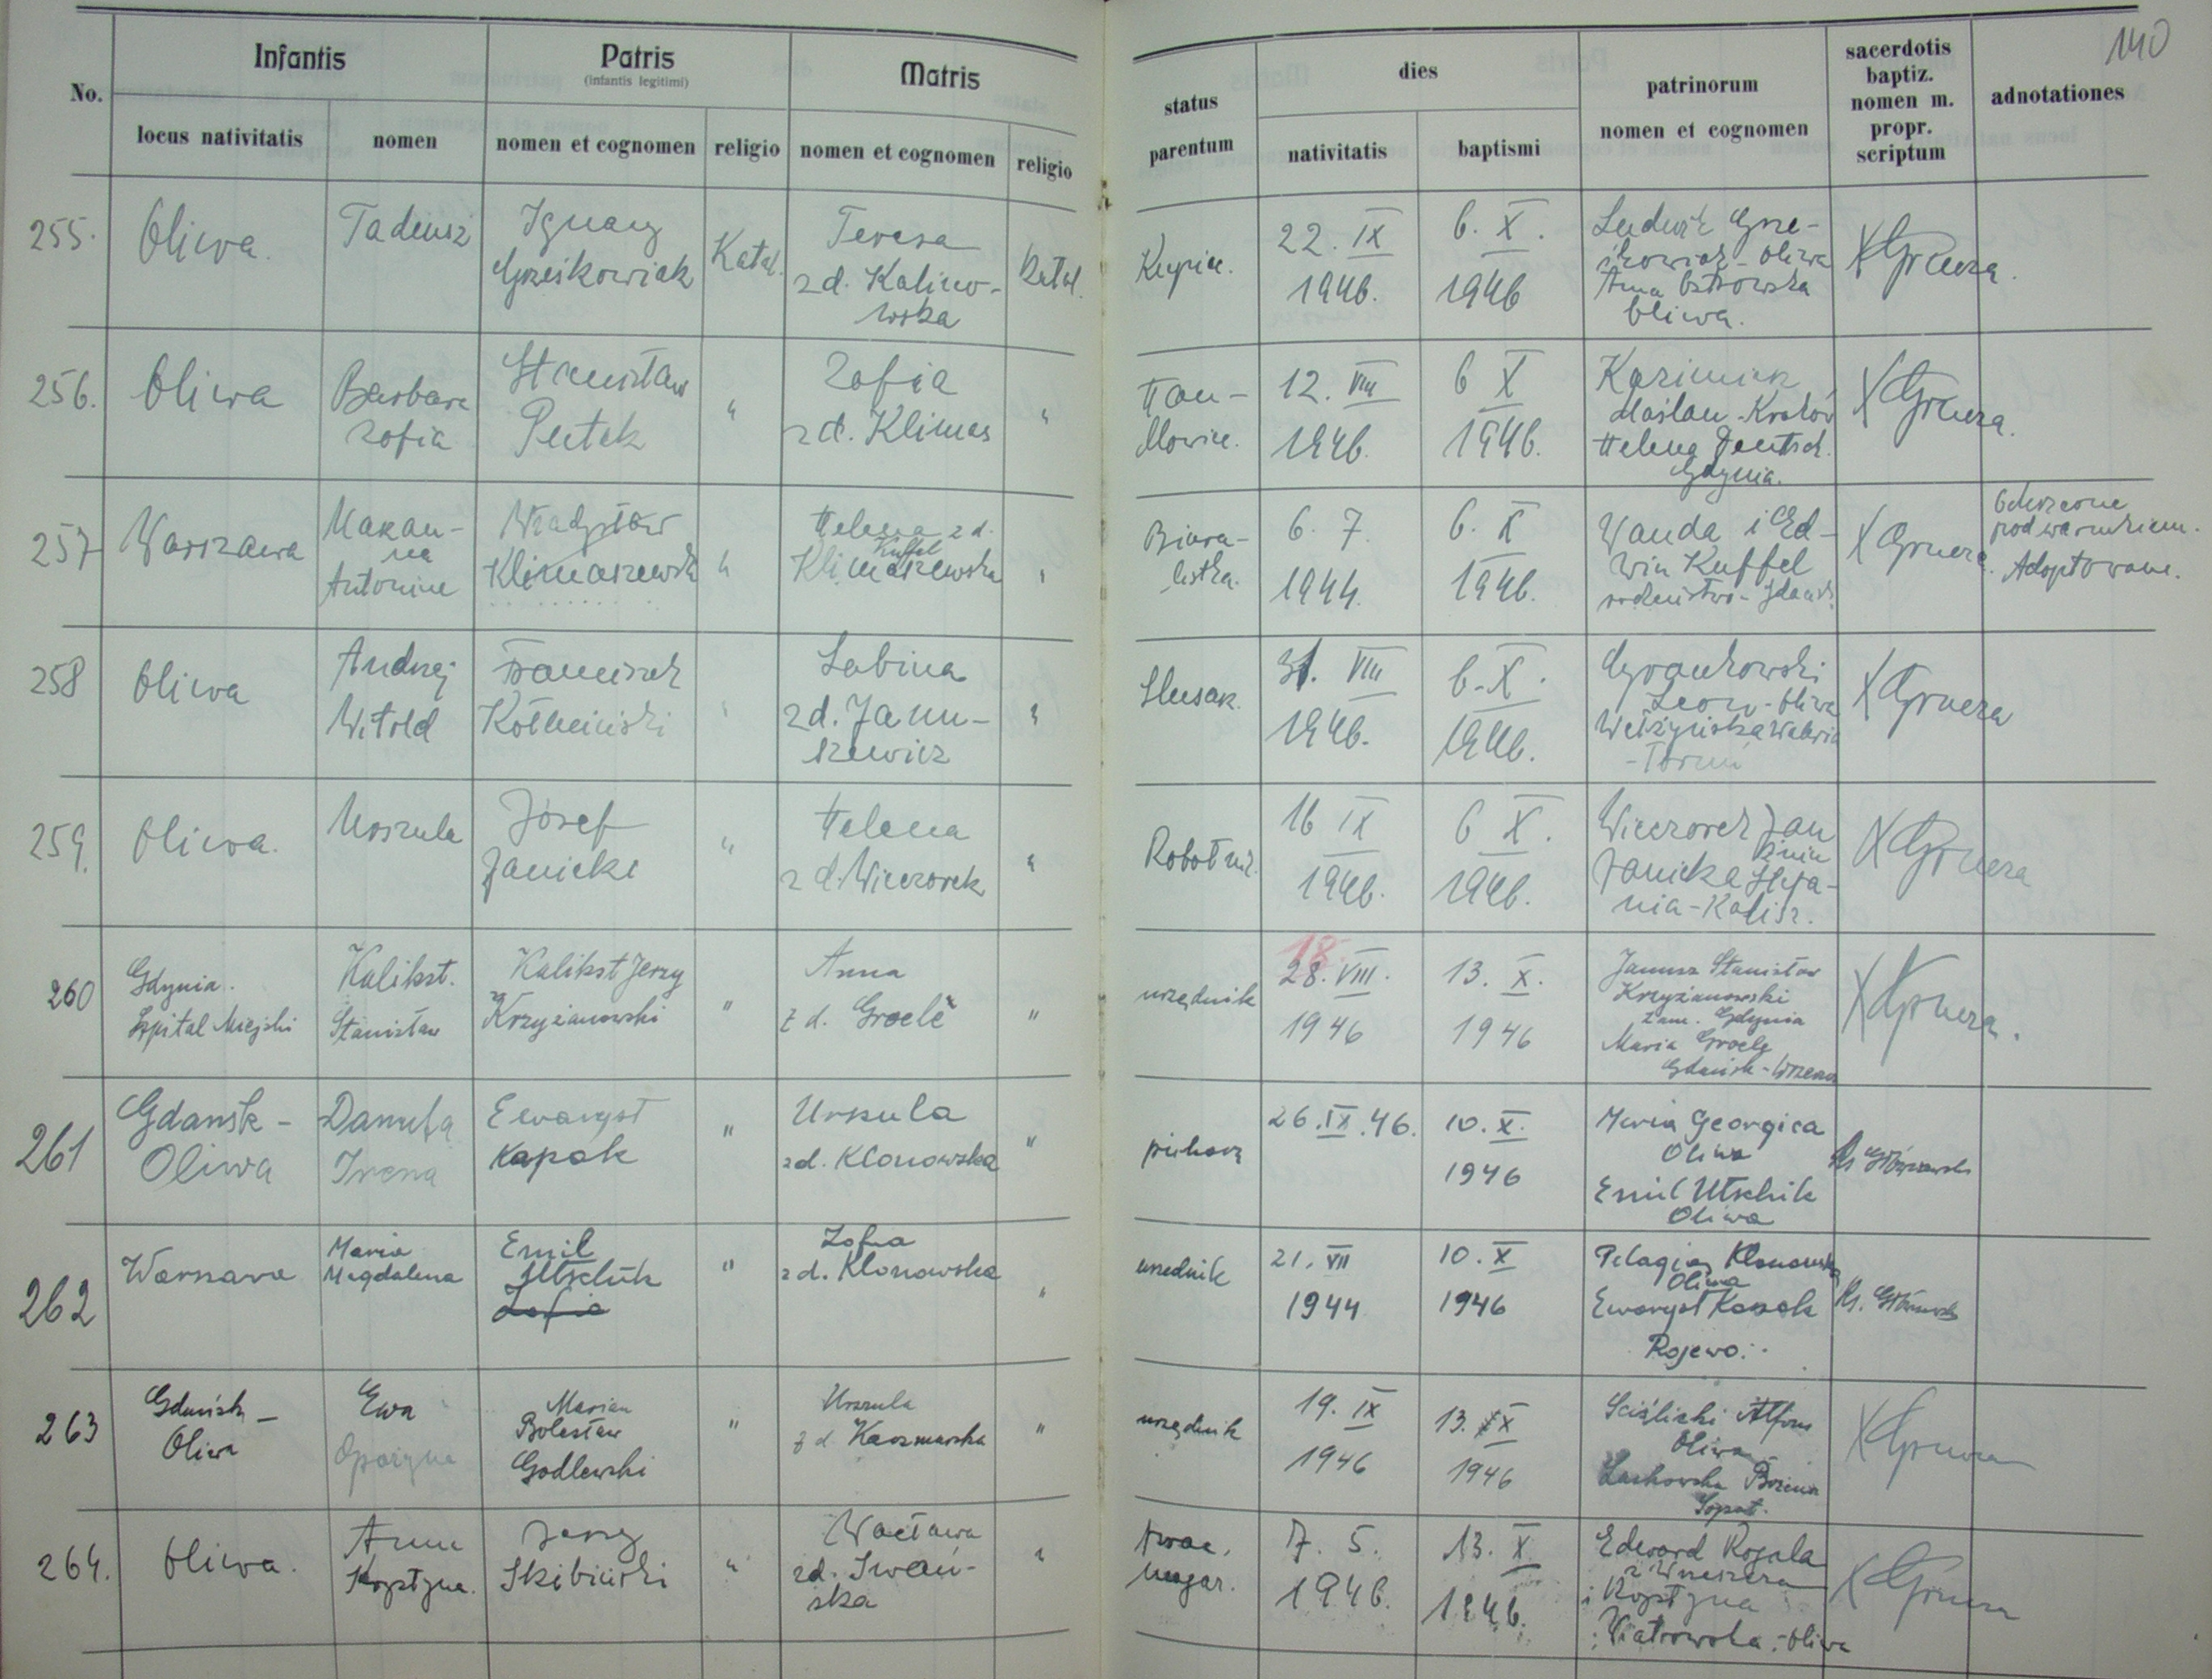 140
No.
Infantis
Patris
(infantis legitimi)
Matris
status parentum
dies
patrinorum
nomen et cognomen
sacerdotis
baptiz.
nomen m.
propr.
scriptum
adnotationes
locus nativitatis
nomen
nomen et cognomen
religio
nomen et cognomen
religio
nativitatis
baptismi
255.
Oliwa.
Tadeusz
Ignacy
Grześkowiak
Katol.
Teresa
z d. Kalino-
wska
Katol.
Kupiec.
22. IX
1946.
6. X.
1946
Ludwik Grze-
śkowiak - Oliwa
Anna Ostrowska
Oliwa.
X Gruza.
256.
Oliwa
Barbara
Zofia
Stanisław
Putek
"
Zofia
z d. Klimas
"
Han-
dlowiec.
12. VIII
1946.
6 X
1946.
Kazimierz
Maślan - Kraków
Helena Deutsch
Gdynia.
X Gruza.
257
Warszawa
Antonina
Władysław
Klimaszewski
"
Helena z d.
Kuffel
Klimaszewska
"
Biura-
listka.
6. 7.
1944.
6. X
1946.
Wanda i Ed-
win Kuffel
rodzeństwo - Gdańsk
X Gruza.
Ochrzczone
pod warunkiem.
Adoptowane.
258
Oliwa
Andrzej
Witold
Franciszek
"
Sabina
z d. Janu-
szewicz
"
Ślusarz.
31. VIII
1946.
6. X.
1946.
Leon - Oliwa
- Toruń
X Gruza
259.
Oliwa.
Urszula
Józef
Janicki
"
Helena
z d. Wieczorek
"
Robotnik.
16 IX
1946.
6 X.
1946.
Wieczorek Jan
Janicka Stefa-
nia - Kalisz.
X Gruza
260
Gdynia.
Szpital Miejski
Kalikst.
Stanisław
Kalikst Jerzy
Krzyżanowski
"
Anna
z d. Groele
"
urzędnik
18
28. VIII.
1946
13. X.
1946
Janusz Stanisław
Krzyżanowski
zam. Gdynia
Maria Groele
Gdańsk - Wrzeszcz
X Gruza.
261
Gdansk -
Oliwa
Danuta
Irena
Ewaryst
Kapak
"
Urszula
z d. Klonowska
"
piekarz
26. IX. 46.
10. X.
1946
Maria Georgica
Oliwa
Emil Utschik
Oliwa
262
Warszawa
Maria
Magdalena
Emil
Utschik
Zofia
"
Zofia
z d. Klonowska
"
urzednik
21. VII
1944
10. X
1946
Pelagia Klonowska
Oliwa
Ewaryst Kapak
Rojewo.
263
Gdańsk -
Oliwa
Ewa
Marian
Bolesław
Godlewski
"
Urszula
z d. Kaczmarska
"
urzędnik
19. IX
1946
13. X
1946
Ściśliski Alfons
Oliwa
Laskowska Bożena
Sopot.
X Gruza
264.
Oliwa.
Anna
Krystyna.
Jerzy
Skibiński
"
Wacława
z d. Iwań-
ska
"
7. 5.
1946.
13. X
1946.
Edward Rogala
z Wrzeszcza
i Krystyna
Wiatrowska - Oliwa
X Gruza